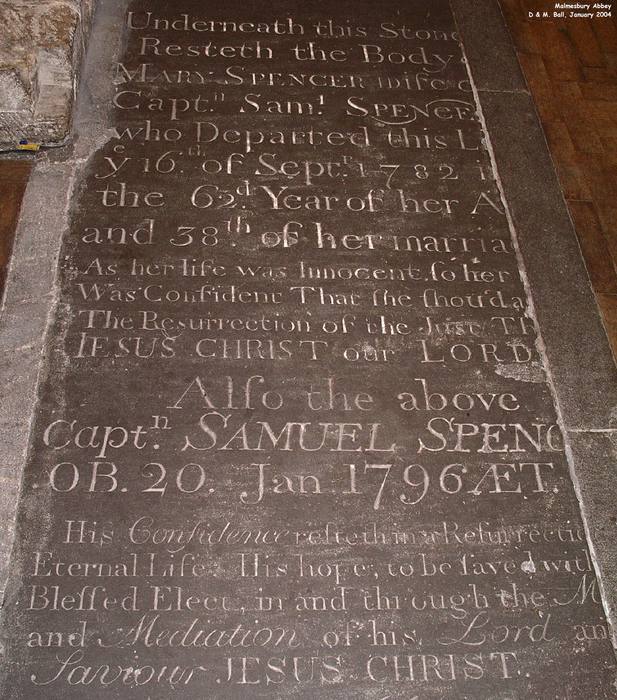 Malmesbury Abbey
D & M. Ball, January 2004
Underneath this Stone
Resteth the Body
MARY SPENCER wife o
Capt.n Sam.l SPENCE
who Departed this L
ye 16.th of Sept.r 1782 i
the 62.d Year of her A
and 38th of her marria
As her life was Innocent, ſo her
Was Confident That ſhe ſhould a
The Resurrection of the Just Th
IESUS CHRIST our LORD
Alſo the above
Capt.n SAMUEL SPENC
OB. 20. Jan 1796 ÆT.
His Confidence reſteth in a Reſurrectio
Eternal Life His hope, to be ſaved with
Bleſſed Elect, in and through the M
and Mediation of his Lord an
Saviour JESUS CHRIST.